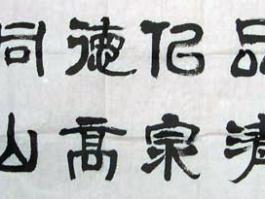 品清
仰宗
德高
同山